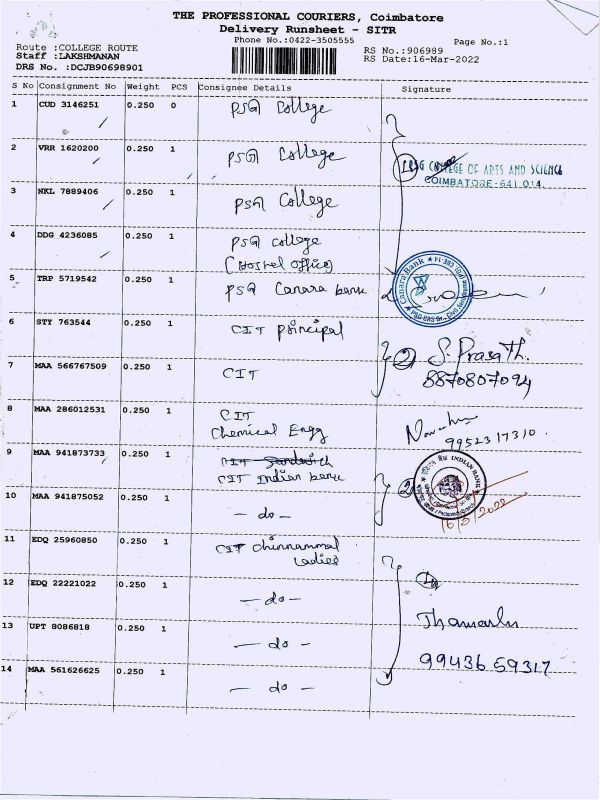 THE PROFESSIONAL COURIERS, Coimbatore
Delivery Runsheet - SITR
Phone No.:0422-3505555
Page No.:1
Route :COLLEGE ROUTE
RS No.:906989
Staff :LAKSHMANAN
RS Date:16-Mar-2022
DRS No. :DCJB90698901
S No Consignment No Weight PCS Consignee Details Signature
1 CUD 3146251 0.250 0 PSG College
2 VRR 1620200 0.250 1 PSG College
PSG COLLEGE OF ARTS AND SCIENCE
COIMBATORE-641 014.
3 NKL 7889406 0.250 1 PSG College
4 DDG 4236085 0.250 1 PSG College
(Hostel Office)
5 TRP 5719542 0.250 1 PSG Canara bank
Canara Bank
6 STY 763544 0.250 1 CIT Principal
2 S. Prasath.
7 MAA 566767509 0.250 1 CIT
8870807094
8 MAA 286012531 0.250 1 CIT
Chemical Engg
9952317310.
9 MAA 941873733 0.250 1 CIT Sandwich
CIT Indian bank
2
INDIAN BANK
10 MAA 941875052 0.250 1 - do -
16/3/2022
11 EDQ 25960850 0.250 1 CIT Chinnammal
Ladies
12 EDQ 22221022 0.250 1 - do -
13 UPT 8086818 0.250 1 - do -
99436 59317
14 MAA 561626625 0.250 1 - do -